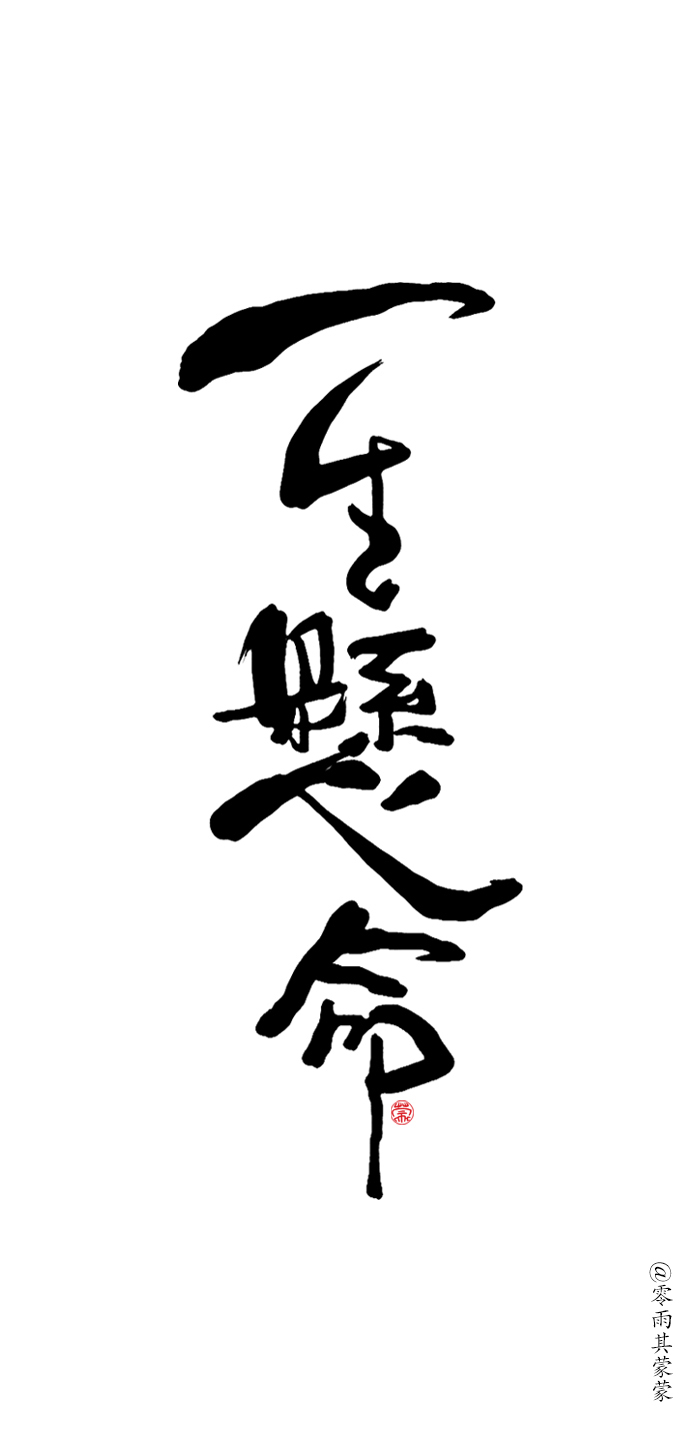 一生懸命
@零雨其蒙蒙